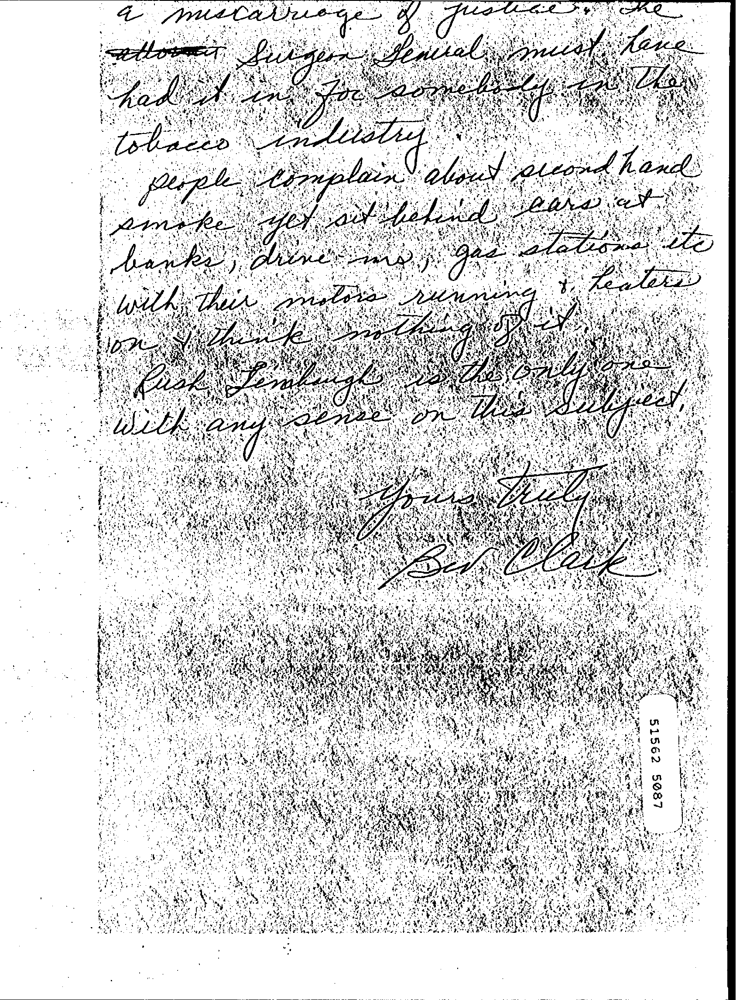 a miscarriage of justice. The
attorney Surgeon General must have
had it in for somebody in the
tobacco industry.
people complain about second hand
smoke yet sit behind cars at
banks, drive ins, gas stations etc
with their motors running & heaters
on & think nothing of it.
Rush Limbaugh is the only one
with any sense on this subject.
Yours Truly
Bev Clark
51562 5087